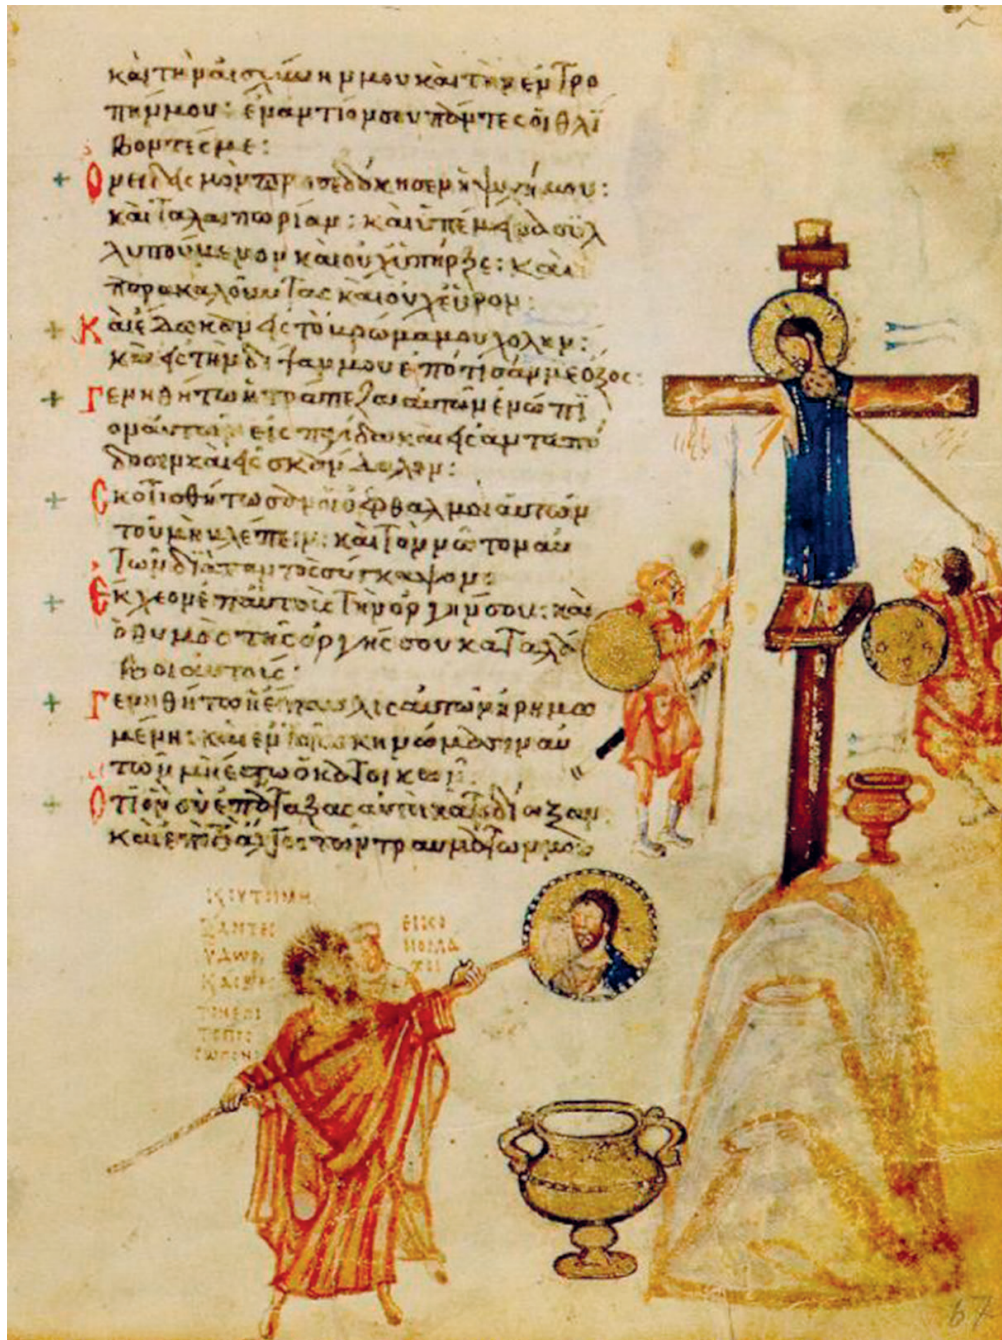 καὶ τὴν αἰσχύνην μου καὶ τὴν ἐντρο
πήν μου: ἐναντίον σου πάντες οἱ θλί
βοντές με:
Ὀνειδισμὸν προσεδόκησεν ἡ ψυχή μου:
καὶ ταλαιπωρίαν: καὶ ὑπέμεινα συλ
λυπούμενον καὶ οὐχ ὑπῆρξε: καὶ
παρακαλοῦντας καὶ οὐχ εὗρον:
Καὶ ἔδωκαν εἰς τὸ βρῶμα μου χολὴν:
καὶ εἰς τὴν δίψαν μου ἐπότισάν με ὄξος:
Γενηθήτω ἡ τράπεζα αὐτῶν ἐνώπι
ον αὐτῶν εἰς παγίδα καὶ εἰς ἀνταπό
δοσιν καὶ εἰς σκάνδαλον:
Σκοτισθήτωσαν οἱ ὀφθαλμοὶ αὐτῶν
τοῦ μὴ βλέπειν: καὶ τὸν νῶτον αὐ
τῶν διὰ παντὸς σύγκαψον:
Ἔκχεον ἐπ' αὐτοὺς τὴν ὀργήν σου: καὶ
ὁ θυμὸς τῆς ὀργῆς σου καταλά
βοι αὐτοὺς:
Γενηθήτω ἡ ἔπαυλις αὐτῶν ἠρημω
μένη: καὶ ἐν τοῖς σκηνώμασιν αὐ
τῶν μὴ ἔστω ὁ κατοικῶν:
Ὅτι ὃν σὺ ἐπάταξας αὐτοὶ κατεδίωξαν:
καὶ ἐπὶ τὸ ἄλγος τῶν τραυμάτων μου
εικο
νομα
χοι
υδωρ
67